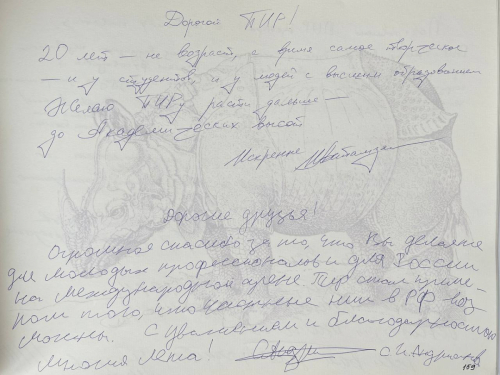 Дорогой ПИР!
20 лет — не возраст, а время самое творческое
— и у студентов, и у людей с высшим образованием
Желаю ПИРу расти дальше —
до Академических высот
Искренне
Дорогие друзья!
Огромное спасибо за то, что Вы делаете
для молодых профессионалов и для России
на международной арене. ПИР стал приме-
ром того, что успешные НИИ в РФ воз-
можны. С уважением и благодарностью
Многая лета!
159